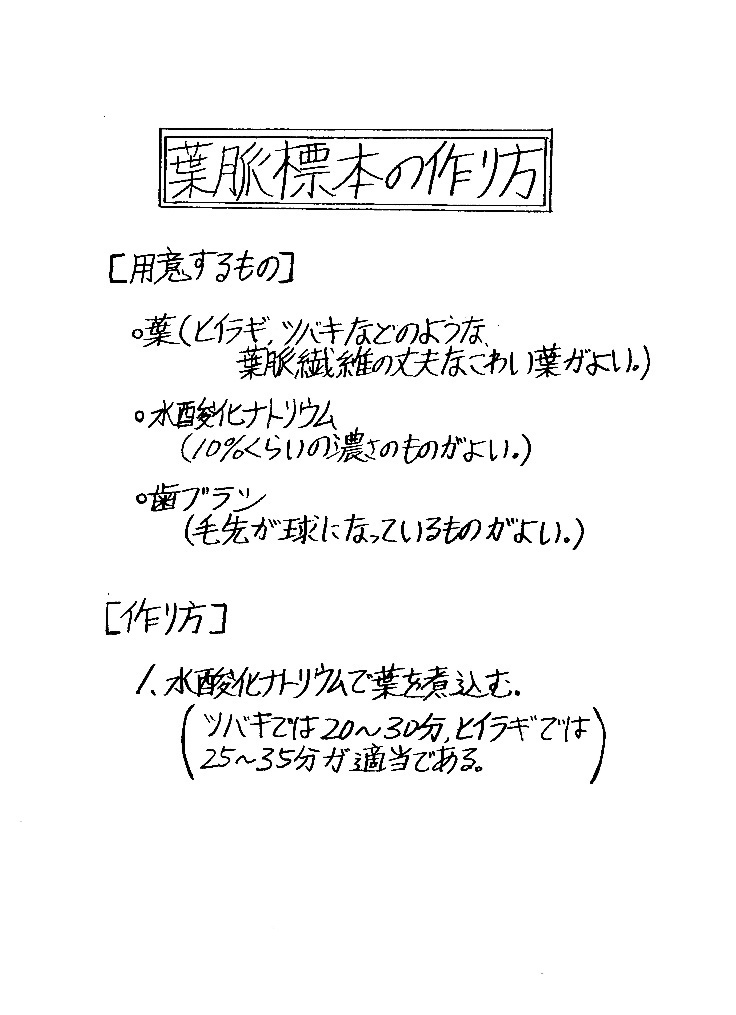 葉脈標本の作り方
[用意するもの]
○葉(ヒイラギ,ツバキなどのような、
葉脈繊維の丈夫なこわい葉がよい。)
○水酸化ナトリウム
(10%くらいの濃さのものがよい。)
○歯ブラシ
(毛先が球になっているものがよい。)
[作り方]
1、水酸化ナトリウムで葉を煮込む。
(ツバキでは20〜30分,ヒイラギでは
25〜35分が適当である。)